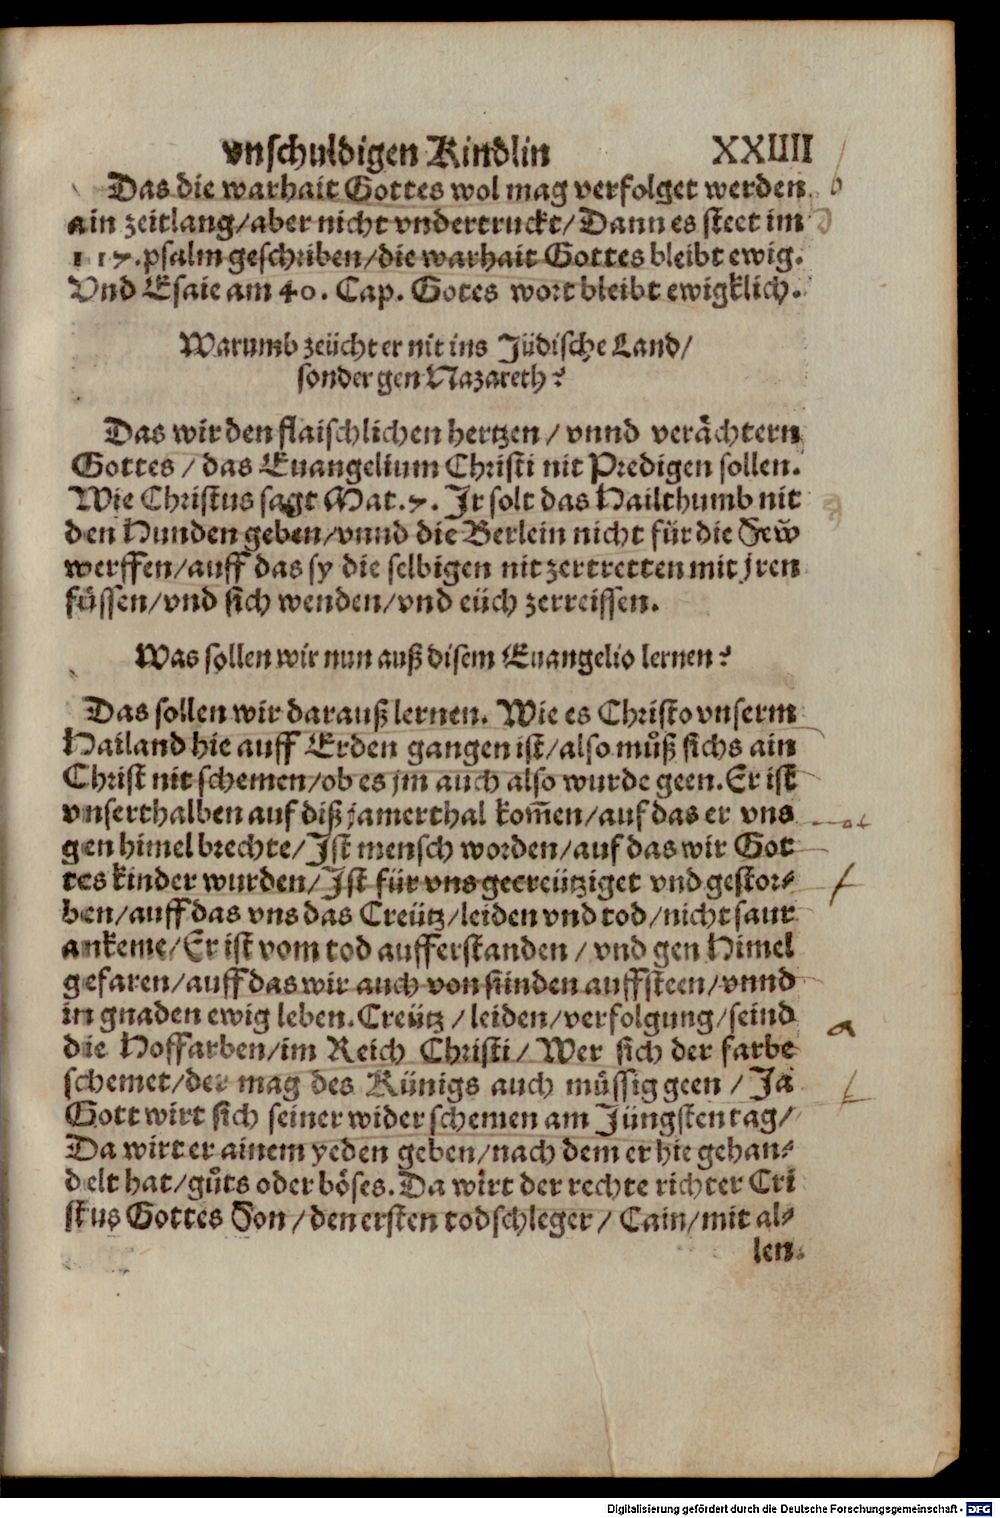 vnschuldigen Kindlin XXIIII
Das die warhait Gottes wol mag verfolget werden
ain zeitlang/aber nicht vndertruckt/Dann es steet im
117.psalm geschriben/die warhait Gottes bleibt ewig.
Vnd Esaie am 40. Cap. Gotes wort bleibt ewigklich.
Warumb zeücht er nit ins Jüdische Land/
sonder gen Nazareth?
Das wir den flaischlichen hertzen / vnnd verächtern
Gottes / das Euangelium Christi nit Predigen sollen.
Wie Christus sagt Mat.7. Jr solt das Hailthumb nit
den Hunden geben/vnnd die Berlein nicht für die Sew̃
werffen/auff das sy die selbigen nit zertretten mit jren
füssen/vnd sich wenden/vnd eüch zerreissen.
Was sollen wir nun auß disem Euangelio lernen?
Das sollen wir darauß lernen. Wie es Christo vnserm
Hailand hie auff Erden gangen ist/also můß sichs ain
Christ nit schemen/ob es jm auch also wurde geen.Er ist
vnserthalben auf diß jamerthal kom̃en/auf das er vns
gen himel brechte/Jst mensch worden/auf das wir Got
tes kinder wurden/Jst für vns gecreütziget vnd gestor⸗
ben/auff das vns das Creütz/leiden vnd tod/nicht saur
ankeme/Er ist vom tod aufferstanden / vnd gen Himel
gefaren/auff das wir auch von sünden auffsteen/vnnd
in gnaden ewig leben.Creütz / leiden/verfolgung/seind
die Hoffarben/im Reich Christi/ Wer sich der farbe
schemet/der mag des Künigs auch müssig geen / Ja
Gott wirt sich seiner wider schemen am Jüngsten tag/
Da wirt er ainem yeden geben/nach dem er hie gehan⸗
delt hat/gůts oder böses.Da wirt der rechte richter Cri
stus Gottes Son/den ersten todschleger/ Cain/mit al⸗
len.
Digitalisierung gefördert durch die Deutsche Forschungsgemeinschaft - DFG